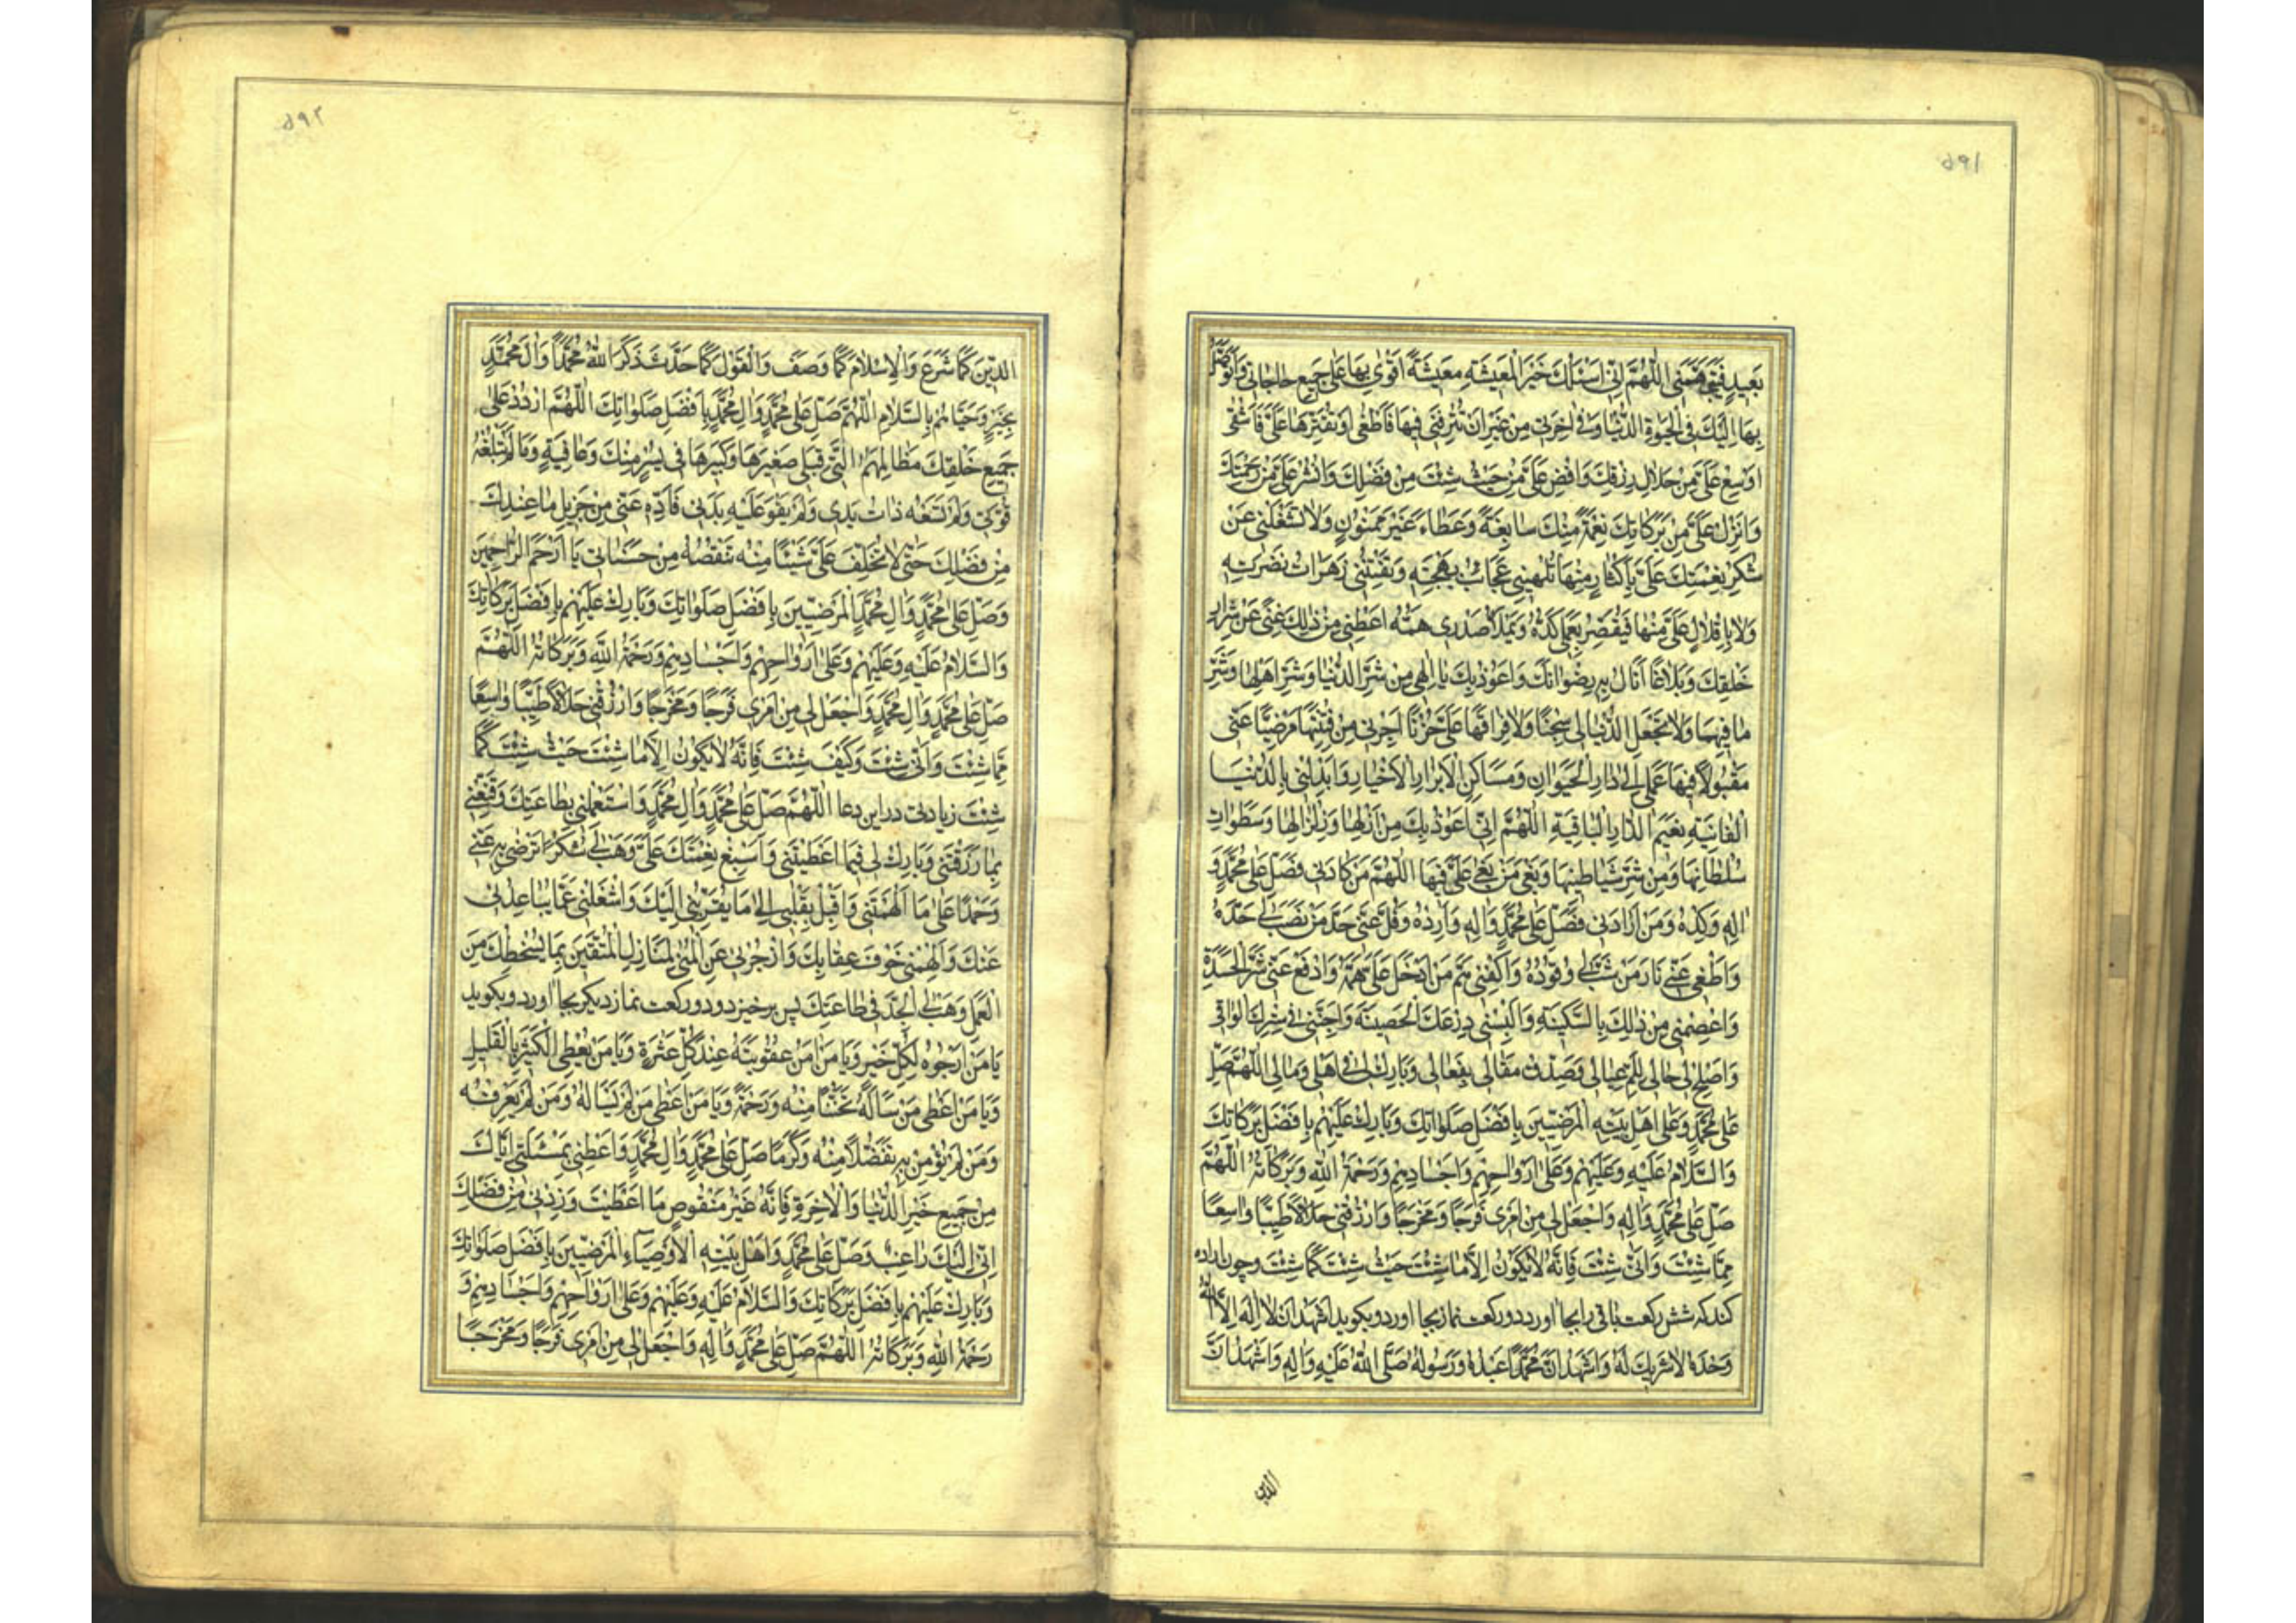 ۵۹۱
بَعيدٍ فَنَجِّنی اَللّهُمَّ اِنّی اَسْئَلُكَ خَیْرَ الْمَعیشَةِ مَعیشَةً اَقْوٰی بِها عَلٰی جَمیعِ حاجاتی وَاَتَوَصَّلُ
بِها اِلَیْكَ فِی الْحَیٰوةِ الدُّنْیا وَفی اخِرَتی مِنْ غَیْرِ اَنْ تُتْرِفَنی فیها فَاَطْغٰی اَوْ تُقَتِّرَها عَلَیَّ فَاَشْقٰی
اَوْسِعْ عَلَیَّ مِنْ حَلالِ رِزْقِكَ وَاَفِضْ عَلَیَّ مِنْ حَیْثُ شِئْتَ مِنْ فَضْلِكَ وَانْشُرْ عَلَیَّ مِنْ رَحْمَتِكَ
وَاَنْزِلْ عَلَیَّ مِنْ بَرَكاتِكَ نِعْمَةً مِنْكَ سابِغَةً وَعَطاءً غَیْرَ مَمْنُونٍ وَلا تَشْغَلْنی عَنْ
شُكْرِ نِعْمَتِكَ عَلَیَّ بِاِكْثارٍ مِنْها تُلْهینی عَجائِبُ بَهْجَتِهِ وَتَفْتِنُنی زَهَراتُ نَضْرَتِهِ
وَلا بِاِقْلالٍ عَلَیَّ مِنْها فَیَقْصُرَ بِعَمَلی كَدُّهُ وَیَمْلَأَ صَدْری هَمُّهُ اَعْطِنی مِنْ ذٰلِكَ غِنًی عَنْ شِرارِ
خَلْقِكَ وَبَلاغًا اَنالُ بِهِ رِضْوانَكَ وَاَعُوذُ بِكَ یا اِلٰهی مِنْ شَرِّ الدُّنْیا وَشَرِّ اَهْلِها وَشَرِّ
ما فیها وَلا تَجْعَلِ الدُّنْیا لی سِجْنًا وَلا فِراقَها عَلَیَّ حُزْنًا اَجِرْنی مِنْ فِتْنَتِها مَرْضِیًّا عَنّی
مَقْبُولًا فیها عَمَلی اِلٰی دارِ الْحَیَوانِ وَمَساكِنِ الْاَبْرارِ الْاَخْیارِ وَاَبْدِلْنی بِالدُّنْیا
الْفانِیَةِ نَعیمَ الدّارِ الْباقِیَةِ اَللّهُمَّ اِنّی اَعُوذُ بِكَ مِنْ اَزْلِها وَزِلْزالِها وَسَطَواتِ
سُلْطانِها وَمِنْ شَرِّ شَیاطینِها وَبَغْیِ مَنْ بَغٰی عَلَیَّ فیها اَللّهُمَّ مَنْ كادَنی فَصَلِّ عَلٰی مُحَمَّدٍ وَ
الِهِ وَكِدْهُ وَمَنْ اَرادَنی فَصَلِّ عَلٰی مُحَمَّدٍ وَالِهِ وَاَرِدْهُ وَفُلَّ عَنّی حَدَّ مَنْ نَصَبَ لی حَدَّهُ
وَاَطْفِئْ عَنّی نارَ مَنْ شَبَّ لی وَقُودَهُ وَاكْفِنی هَمَّ مَنْ اَدْخَلَ عَلَیَّ هَمَّهُ وَادْفَعْ عَنّی شَرَّ الْحَسَدَةِ
وَاعْصِمْنی مِنْ ذٰلِكَ بِالسَّكینَةِ وَاَلْبِسْنی دِرْعَكَ الْحَصینَةَ وَاجْنُنی فی سِتْرِكَ الْواقی
وَاَصْلِحْ لی حالی عِیالی وَصَدِّقْ مَقالی بِفَعالی وَبارِكْ لی فی اَهْلی وَمالی اَللّهُمَّ صَلِّ
عَلٰی مُحَمَّدٍ وَعَلٰی اَهْلِ بَیْتِهِ الْمَرْضِیّینَ بِاَفْضَلِ صَلَواتِكَ وَبارِكْ عَلَیْهِمْ بِاَفْضَلِ بَرَكاتِكَ
وَالسَّلامُ عَلَیْهِ وَعَلَیْهِمْ وَعَلٰی اَرْواحِهِمْ وَاَجْسادِهِمْ وَرَحْمَةُ اللهِ وَبَرَكاتُهُ اَللّهُمَّ
صَلِّ عَلٰی مُحَمَّدٍ وَالِهِ وَاجْعَلْ لی مِنْ اَمْری فَرَجًا وَمَخْرَجًا وَارْزُقْنی حَلالًا طَیِّبًا واسِعًا
مِمّا شِئْتَ وَاَنّٰی شِئْتَ فَاِنَّهُ لا یَكُونُ اِلّا ما شِئْتَ حَیْثُ شِئْتَ كَما شِئْتَ وچون اراده
كند كه شش ركعت باقی را بجا اورد دو ركعت نماز بجا اورد و بكوید اَشْهَدُ اَنْ لا اِلٰهَ اِلَّا اللهُ
وَحْدَهُ لا شَریكَ لَهُ وَاَشْهَدُ اَنَّ مُحَمَّدًا عَبْدُهُ وَرَسُولُهُ صَلَّی اللهُ عَلَیْهِ وَالِهِ وَاَشْهَدُ اَنَّ
الدین
۵۹۲
الدّینَ كَما شَرَعَ وَالْاِسْلامَ كَما وَصَفَ وَالْقَوْلَ كَما حَدَّثَ ذَكَرَ اللهُ مُحَمَّدًا وَالَ مُحَمَّدٍ
بِخَیْرٍ وَحَیّاهُمْ بِالسَّلامِ اَللّهُمَّ صَلِّ عَلٰی مُحَمَّدٍ وَالِ مُحَمَّدٍ بِاَفْضَلِ صَلَواتِكَ اَللّهُمَّ ارْدُدْ عَلٰی
جَمیعِ خَلْقِكَ مَظالِمَهُمُ الَّتی قِبَلی صَغیرَها وَكَبیرَها فی یُسْرٍ مِنْكَ وَعافِیَةٍ وَما لَمْ تَبْلُغْهُ
قُوَّتی وَلَمْ تَسَعْهُ ذاتُ یَدی وَلَمْ یَقْوَ عَلَیْهِ بَدَنی فَاَدِّهِ عَنّی مِنْ جَزیلِ ما عِنْدَكَ
مِنْ فَضْلِكَ حَتّٰی لا تُخَلِّفَ عَلَیَّ شَیْئًا مِنْهُ تَنْقُصُهُ مِنْ حَسَناتی یا اَرْحَمَ الرّاحِمینَ
وَصَلِّ عَلٰی مُحَمَّدٍ وَالِ مُحَمَّدٍ الْمَرْضِیّینَ بِاَفْضَلِ صَلَواتِكَ وَبارِكْ عَلَیْهِمْ بِاَفْضَلِ بَرَكاتِكَ
وَالسَّلامُ عَلَیْهِ وَعَلَیْهِمْ وَعَلٰی اَرْواحِهِمْ وَاَجْسادِهِمْ وَرَحْمَةُ اللهِ وَبَرَكاتُهُ اَللّهُمَّ
صَلِّ عَلٰی مُحَمَّدٍ وَالِ مُحَمَّدٍ وَاجْعَلْ لی مِنْ اَمْری فَرَجًا وَمَخْرَجًا وَارْزُقْنی حَلالًا طَیِّبًا واسِعًا
مِمّا شِئْتَ وَاَنّٰی شِئْتَ وَكَیْفَ شِئْتَ فَاِنَّهُ لا یَكُونُ اِلّا ما شِئْتَ حَیْثُ شِئْتَ كَما
شِئْتَ زیادتی در این دعا اَللّهُمَّ صَلِّ عَلٰی مُحَمَّدٍ وَالِ مُحَمَّدٍ وَاسْتَعْمِلْنی بِطاعَتِكَ وَقَنِّعْنی
بِما رَزَقْتَنی وَبارِكْ لی فیما اَعْطَیْتَنی وَاَسْبِغْ نِعْمَتَكَ عَلَیَّ وَهَبْ لی شُكْرًا تَرْضٰی بِهِ عَنّی
وَحَمْدًا عَلٰی ما اَلْهَمْتَنی وَاَقْبِلْ بِقَلْبی اِلٰی ما یُقَرِّبُنی اِلَیْكَ وَاشْغَلْنی عَمّا یُباعِدُنی
عَنْكَ وَاَلْهِمْنی خَوْفَ عِقابِكَ وَازْجُرْنی عَنِ الْمُنٰی لِمَنازِلِ الْمُتَّقینَ بِما یُسْخِطُكَ مِنَ
الْعَمَلِ وَهَبْ لِیَ الْجِدَّ فی طاعَتِكَ پس برخیزد و دو ركعت نماز دیكر بجا اورد و بكوید
یا مَنْ اَرْجُوهُ لِكُلِّ خَیْرٍ وَیا مَنْ امَنُ عُقُوبَتَهُ عِنْدَ كُلِّ عَثْرَةٍ وَیا مَنْ یُعْطِی الْكَثیرَ بِالْقَلیلِ
وَیا مَنْ اَعْطٰی مَنْ سَأَلَهُ تَحَنُّنًا مِنْهُ وَرَحْمَةً وَیا مَنْ اَعْطٰی مَنْ لَمْ یَسْأَلْهُ وَمَنْ لَمْ یَعْرِفْهُ
وَمَنْ لَمْ یُؤْمِنْ بِهِ تَفَضُّلًا مِنْهُ وَكَرَمًا صَلِّ عَلٰی مُحَمَّدٍ وَالِ مُحَمَّدٍ وَاَعْطِنی بِمَسْئَلَتی اِیّاكَ
مِنْ جَمیعِ خَیْرِ الدُّنْیا وَالْاخِرَةِ فَاِنَّهُ غَیْرُ مَنْقُوصٍ ما اَعْطَیْتَ وَزِدْنی مِنْ فَضْلِكَ
اِنّی اِلَیْكَ راغِبٌ وَصَلِّ عَلٰی مُحَمَّدٍ وَاَهْلِ بَیْتِهِ الْاَوْصِیاءِ الْمَرْضِیّینَ بِاَفْضَلِ صَلَواتِكَ
وَبارِكْ عَلَیْهِمْ بِاَفْضَلِ بَرَكاتِكَ وَالسَّلامُ عَلَیْهِ وَعَلَیْهِمْ وَعَلٰی اَرْواحِهِمْ وَاَجْسادِهِمْ وَ
رَحْمَةُ اللهِ وَبَرَكاتُهُ اَللّهُمَّ صَلِّ عَلٰی مُحَمَّدٍ وَالِهِ وَاجْعَلْ لی مِنْ اَمْری فَرَجًا وَمَخْرَجًا